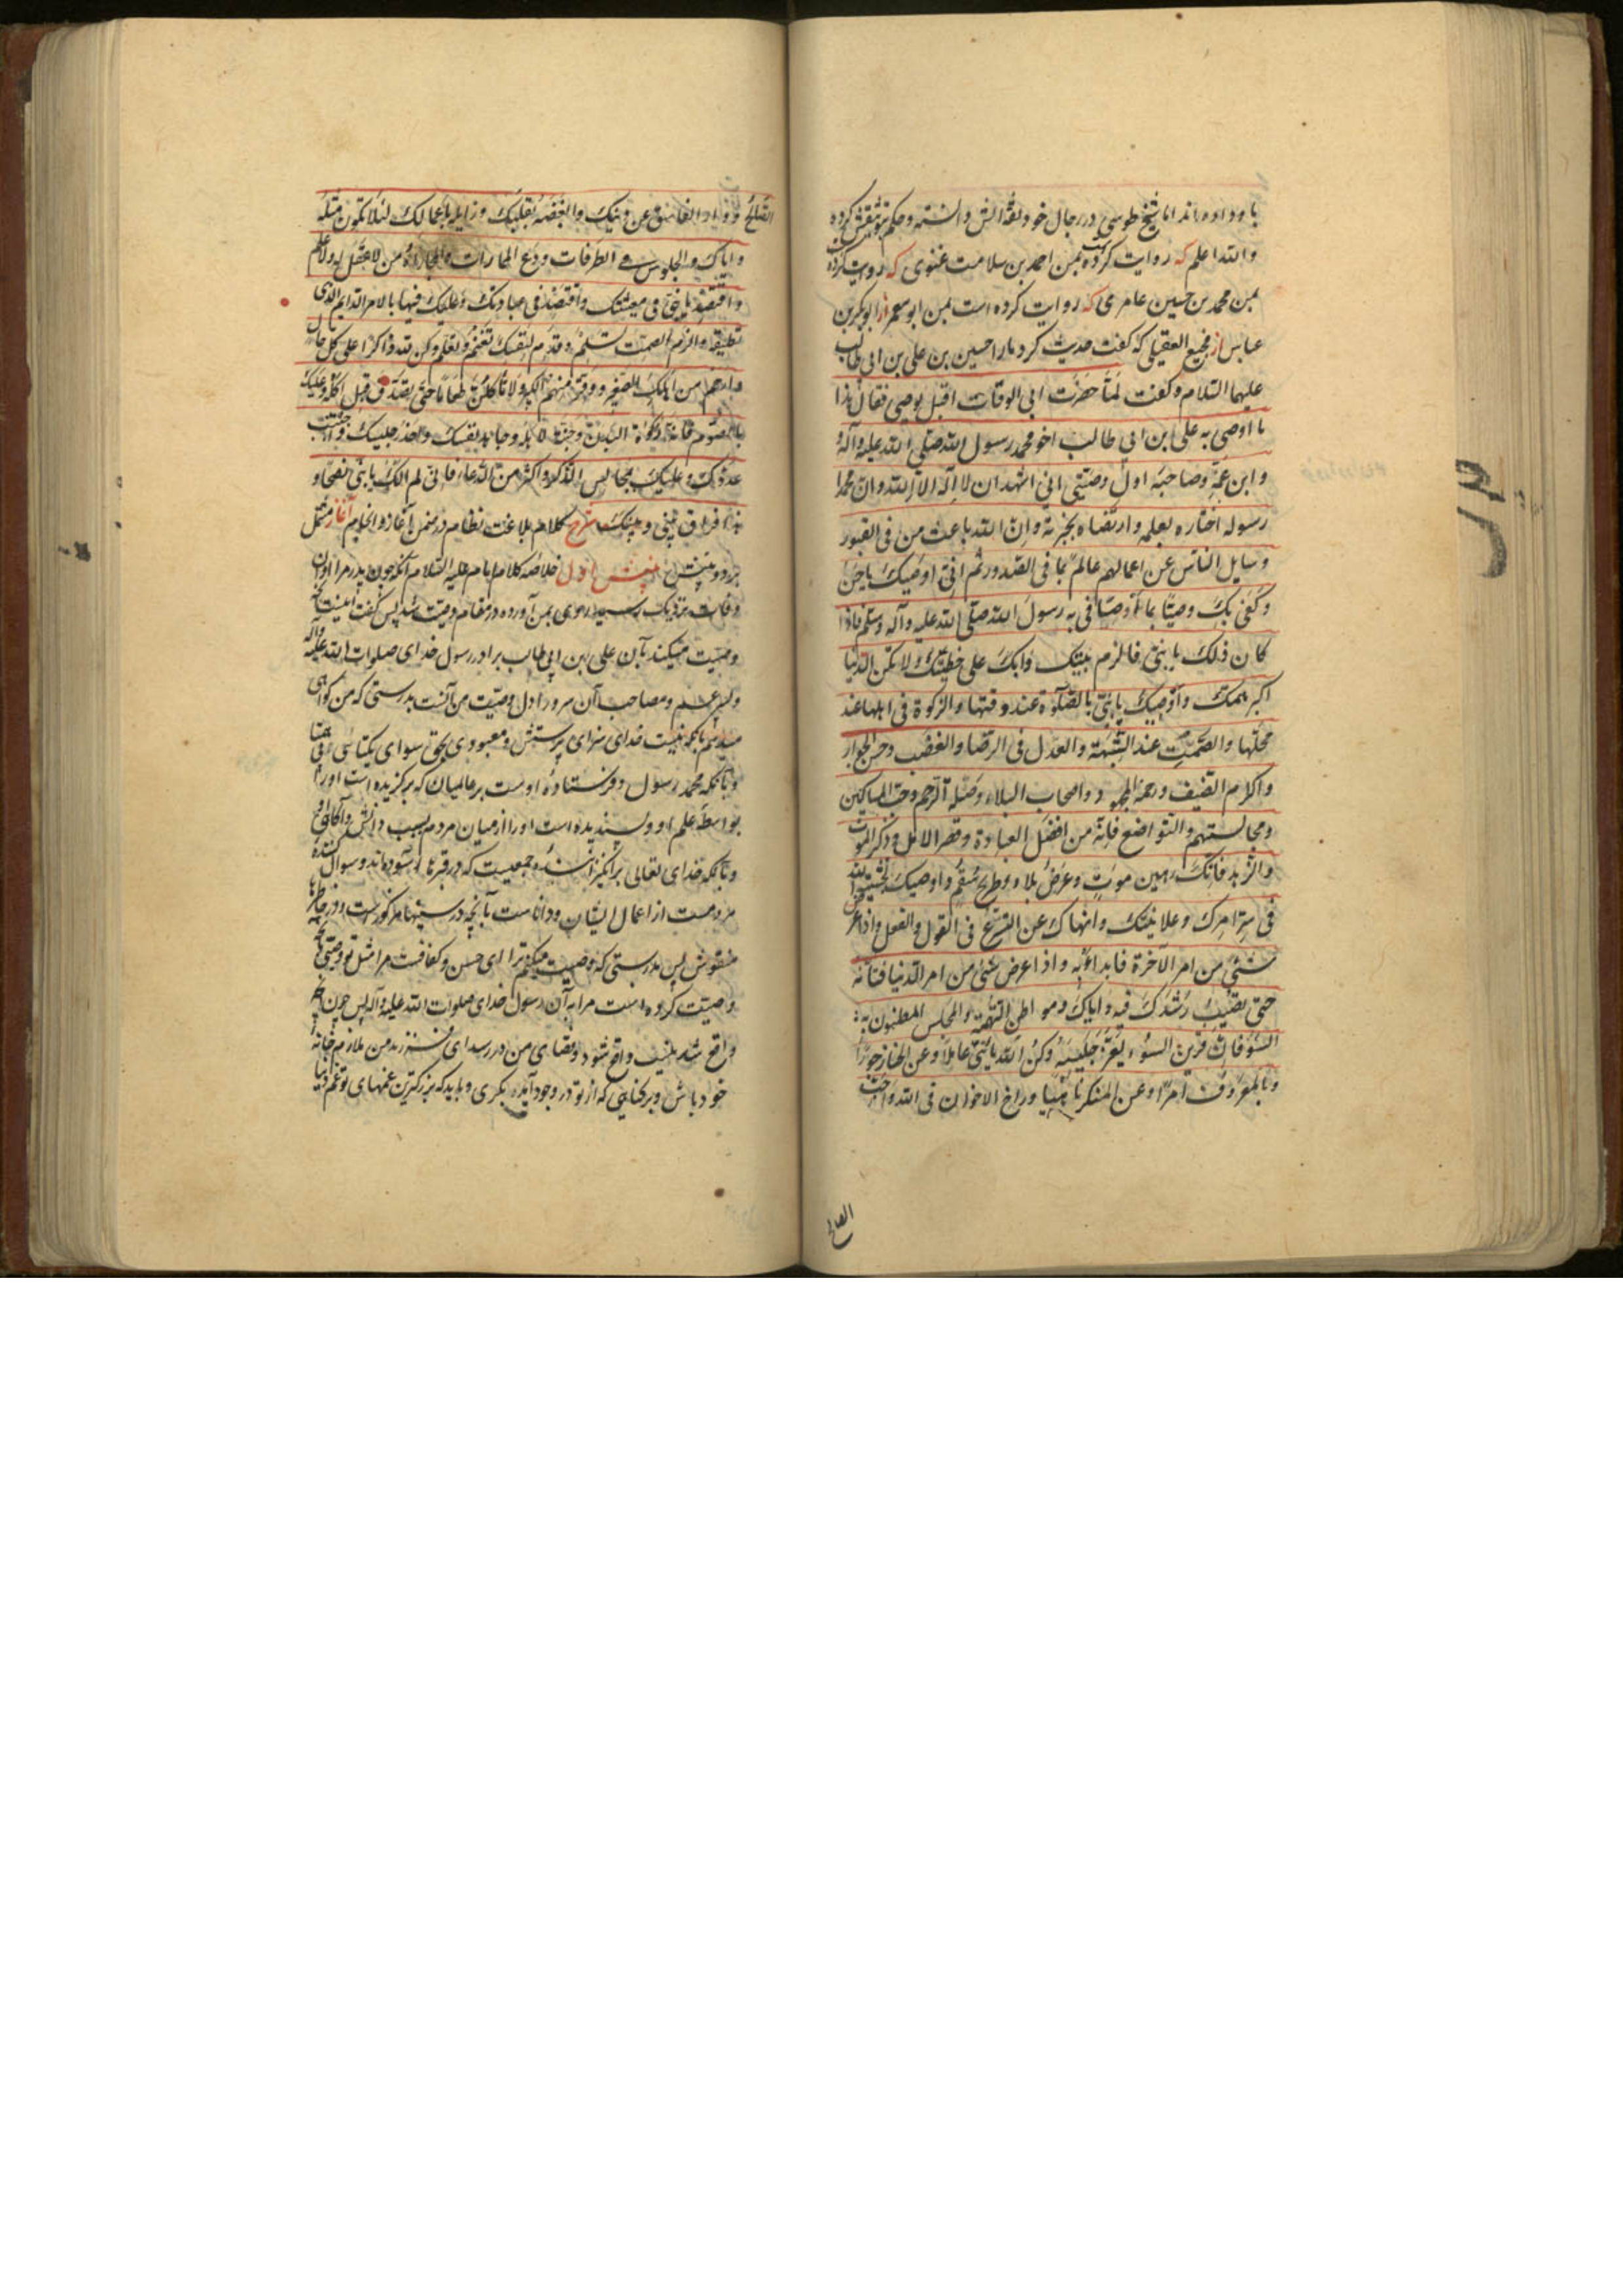 با و داده‌اند اما شیخ طوسی در رجال خود بعد الش دانسته و حکم کرده
والله اعلم که روایت کرده بمن احمد بن سلامت غنوی که روایت کرده
بمن محمد بن حسین عامری که روایت کرده است بمن ابو معمر از ابو بکر بن
عباس از فجیع العقیلی که گفت حدیث کرد مارا حسین بن علی بن ابی طالب
علیهما السلام و گفت لما حضرت ابی الوفات اقبل یوصی فقال هذا
ما اوصی به علی ابن ابی طالب اخو محمد رسول الله صلی الله علیه و آله و
وابن عمه وصاحبه اول وصیتی انی اشهد ان لا اله الا الله وان محمدا
رسوله اختاره بعلمه وارتضاه بخیرته وان الله باعث من فی القبور
وسایل الناس عن اعمالهم عالم بما فی الصدور ثم انی اوصیک یا حسن
وکفی بک وصیا بما اوصانی به رسول الله صلی الله علیه وآله وسلم فاذا
کان ذلک یا بنی فالزم بیتک وابک علی خطیئتک ولا تکن الدنیا
اکبر همک واوصیک یا بنی بالصلوة عند وقتها والزکوة فی اهلها عند
محلها والصمت عند الشبهة والعدل فی الرضا والغضب وحسن الجوار
واکرام الضیف ورحمة المجهود واصحاب البلاء وصلة الرحم وحب المساکین
ومجالستهم والتواضع فانه من افضل العبادة وقصر الامل وذکر الموت
والزهد فانک رهین موت وعرض بلاء وطریح سقم واوصیک بخشیة الله
فی سر امرک وعلانیتک وانهاک عن التسرع فی القول والفعل واذا عرض
شئ من امر الآخرة فابدا به واذا عرض شئ من امر الدنیا فتأنه
حتی تصیب رشدک فیه وایاک ومواطن التهمة والمجلس المظنون به
السوء فان قرین السوء یغر جلیسه وکن لله یا بنی عاملا وعن الخنا زجورا
وبالمعروف امرا وعن المنکر ناهیا وواخ الاخوان فی الله واحب
الصالح
الصالح و دار الفاسق عن دینک وابغضه بقلبک وزایله باعمالک لئلا تکون مثله
وایاک والجلوس فی الطرقات ودع الممارات والمجاراة من لا عقل له ولا علم
واقتصد یا بنی فی معیشتک واقتصد فی عبادتک وعلیک فیها بالامر الدایم الذی
تطیقه والزم الصمت تسلم وقدم لنفسک تغنم وتعلم وکن لله ذاکرا علی کل حال
وارحم من اهلک الصغیر ووقر منهم الکبیر ولا تاکلن طعاما حتی تصدق قبل اکله وعلیک
بالصوم فانه زکوة البدن وجنة لاهله وجاهد نفسک واحذر جلیسک واجتنب
عدوک وعلیک بمجالس الذکر واکثر من الدعاء فانی لم الک یا بنی نصحا و
هذا فراق بینی وبینک شرح کلام بلاغت نظام در ضمن آغاز و انجام آغاز مشتمل
بر دو بینش بینش اول خلاصه کلام امام علیه السلام آنکه چون پدر مرا اوان
وفات نزدیک رسید روی بمن آورده در مقام وصیت شد پس گفت اینست آنچه
وصیت میکند بآن علی ابن ابی طالب برادر رسول خدای صلوات الله علیه وآله
وپسر عم و مصاحب آن سرور اول وصیت من آنست بدرستی که من گواهی
میدهم بآنکه نیست خدای سزای پرستش و معبودی بحق سوای یکتا
و بآنکه محمد رسول و فرستاده اوست بر عالمیان که برگزیده است او را
بواسطه علم او و پسندیده است او را از میان مردم بسبب دانش و آگاهی او
و بآنکه خدای تعالی برانگیزاننده جمعیت که در قبرها آسوده‌اند و سوال کننده
مردمست از اعمال ایشان و داناست بآنچه در سینها مذکور است و در خاطرها
منقوش پس بدرستی که وصیت میکنم ترا ای حسن و کفافست مرا مثل تو وصیی بآنچه
وصیت کرده است مرا به آن رسول خدای صلوات الله علیه وآله پس چون
واقع شدنیست واقع شود و قضای من در رسد ای فرزند من ملازم خانه
خود باش و بر خطایی که از تو در وجود آید بگری و باید که بزرگترین غمهای تو غم دنیا